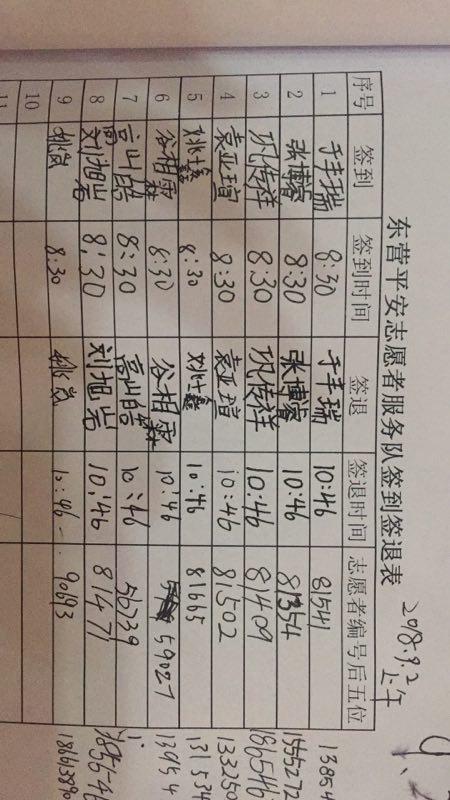 东营平安志愿者服务队签到签退表
2018.9.2
上午
序号 签到 签到时间 签退 签退时间 志愿者编号后五位
1 于丰瑞 8:30 于丰瑞 10:46 81541 13854
2 张博睿 8:30 张博睿 10:46 81354 155527
3 巩传祥 8:30 巩传祥 10:46 81409 186546
4 袁亚瑄 8:30 袁亚瑄 10:46 81502 133250
5 姚士鑫 8:30 姚士鑫 10:46 81665 131534
6 谷相霖 8:30 谷相霖 10:46 59027 13954
7 高山皓 8:30 高山皓 10:46 50739
8 刘旭岩 8:30 刘旭岩 10:46 81471
9 姚岚 8:30 姚岚 10:46 90693
10
11